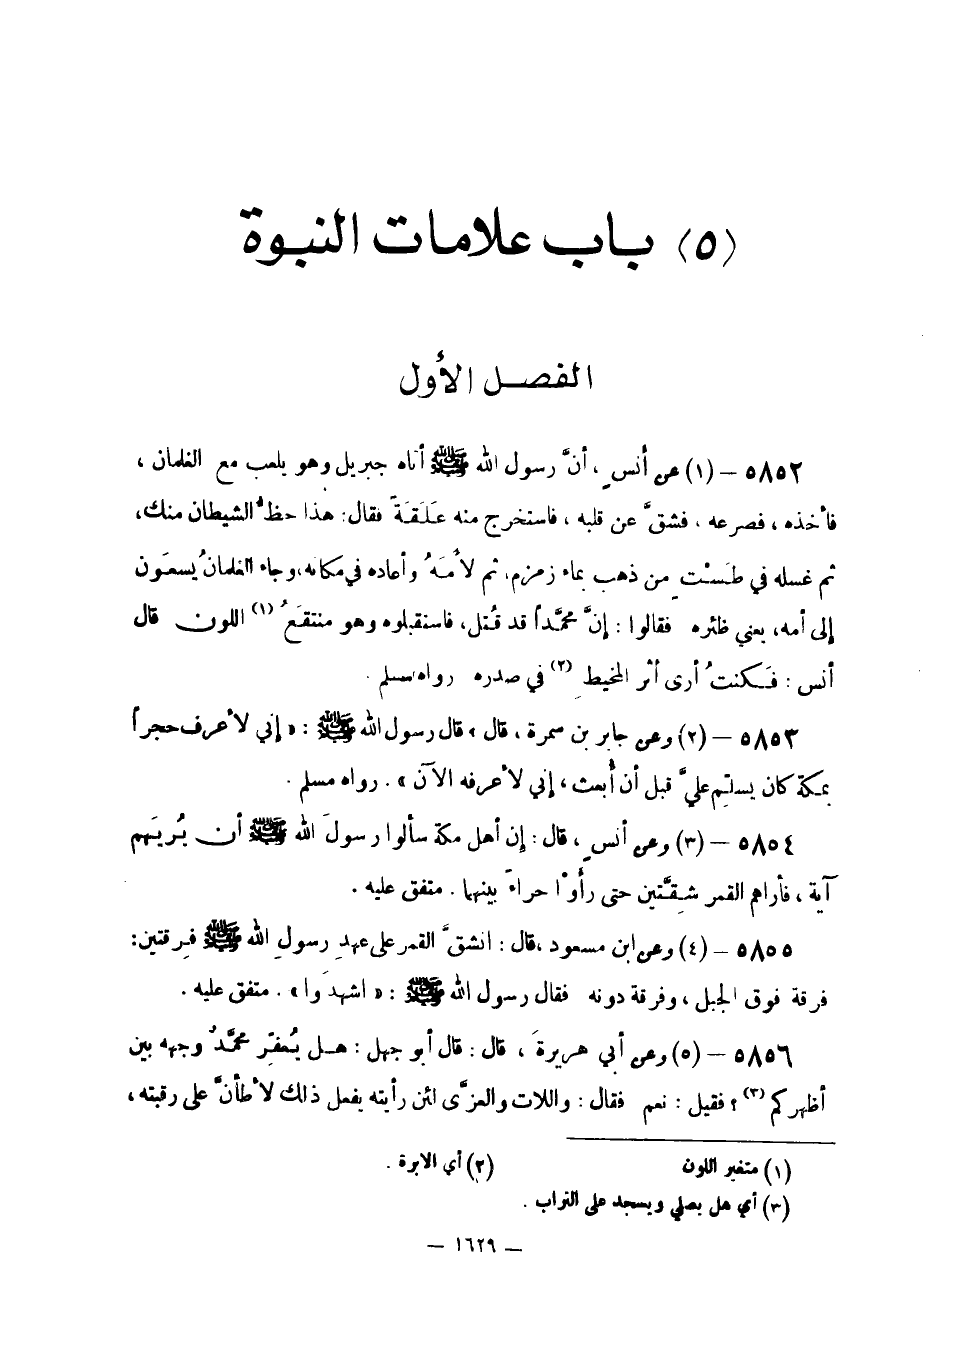 (٥) بـاب علامات النبوة
الفصـل الأول
٥٨٥٢ – (١) عن أنسٍ ، أنَّ رسول الله ﷺ أتاه جبريل وهو يلعب مع الغلمان ،
فأخذه ، فصرعه ، فشقَّ عن قلبه ، فاستخرج منه عَلَقَةً فقال: هذا حظُّ الشيطان منك،
ثم غسله في طَسْتٍ من ذهب بماء زمزم، ثم لأَمَهُ وأعاده في مكانه، وجاء الغلمانُ يسعَون
إلى أمه، يعني ظئره فقالوا : إنَّ محمَّداً قد قُتل، فاستقبلوه وهو منتقَعُ (١) اللون قال
أنس : فكنتُ أرى أثر المخيطِ (٢) في صدره رواه مسلم .
٥٨٥٣ – (٢) وعن جابر بن سمرة ، قال » قال رسول الله ﷺ : « إني لأعرف حجراً
بمكة كان يسلّم عليَّ قبل أن أُبعث ، إني لأعرفه الآن » . رواه مسلم .
٥٨٥٤ – (٣) وعن أنسٍ ، قال : إن أهل مكة سألوا رسولَ الله ﷺ أن يُريَهم
آية ، فأراهم القمر شِقَّتين حتى رأوْا حراءَ بينهما . متفق عليه .
٥٨٥٥ – (٤) وعن ابن مسعود ،قال : انشقَّ القمر على عهدِ رسولِ الله ﷺ فِرقتين:
فرقة فوق الجبل ، وفرقة دونه فقال رسول الله ﷺ : « اشهدوا » . متفق عليه .
٥٨٥٦ – (٥) وعن أبي هريرةَ ، قال : قال أبو جهل : هـل يُعفّر محمَّدٌ وجهه بين
أظهركم (٣) ؟ فقيل : نعم فقال : واللات والعزَّى لئن رأيته يفعل ذلك لأطأنَّ على رقبته ،
(١) متغير اللون (٢) أي الابرة .
(٣) أي هل يصلي ويسجد على التراب .
– ١٦٢٩ –